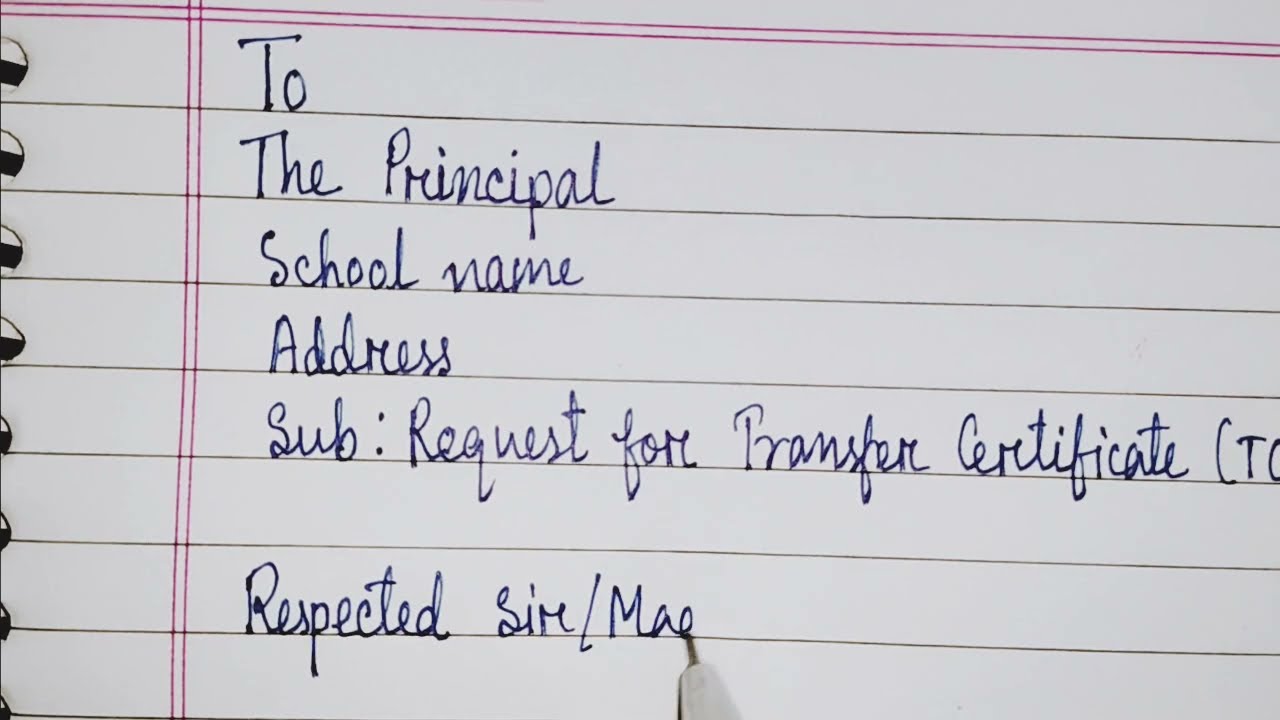 To
The Principal
School name
Address
Sub: Request for Transfer Certificate (TC
Respected Sir/Ma